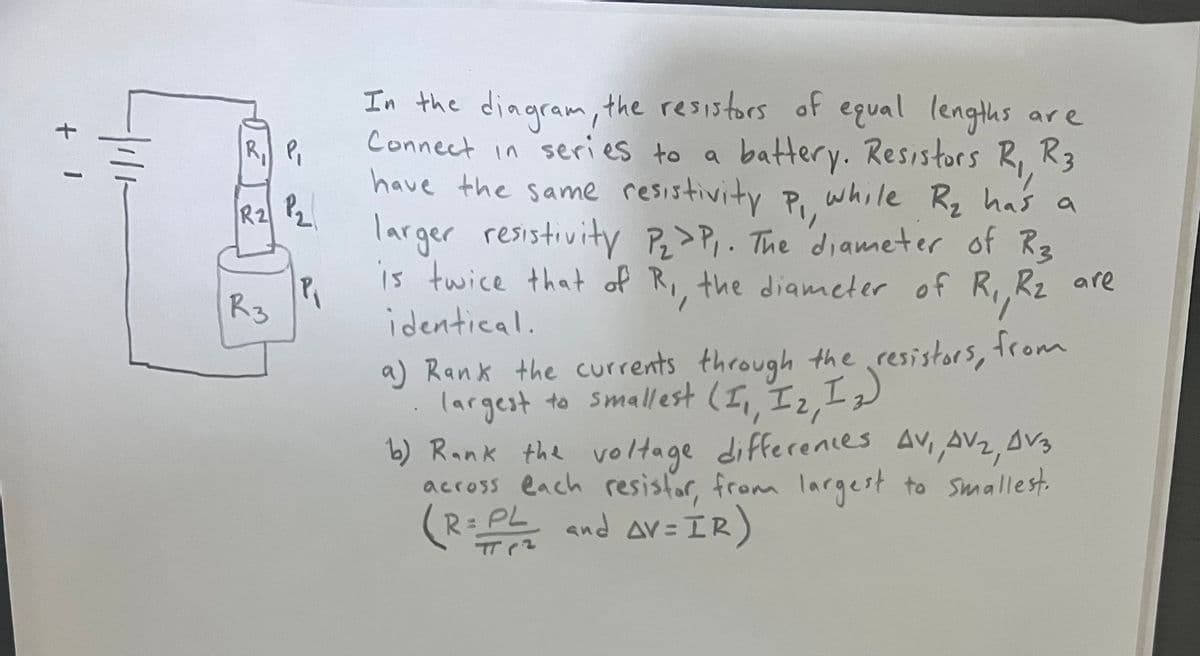 +
-
R₁ P₁
R2 P₂
R3 P₁
In the diagram, the resistors of equal lengths are
Connect in series to a battery. Resistors R₁, R₃
have the same resistivity P₁, while R₂ has a
larger resistivity P₂>P₁. The diameter of R₃
is twice that of R₁, the diameter of R₁, R₂ are
identical.
a) Rank the currents through the resistors, from
largest to smallest (I₁, I₂, I₃)
b) Rank the voltage differences ΔV₁, ΔV₂, ΔV₃
across each resistor, from largest to smallest.
(R = PL/πr² and ΔV = IR)